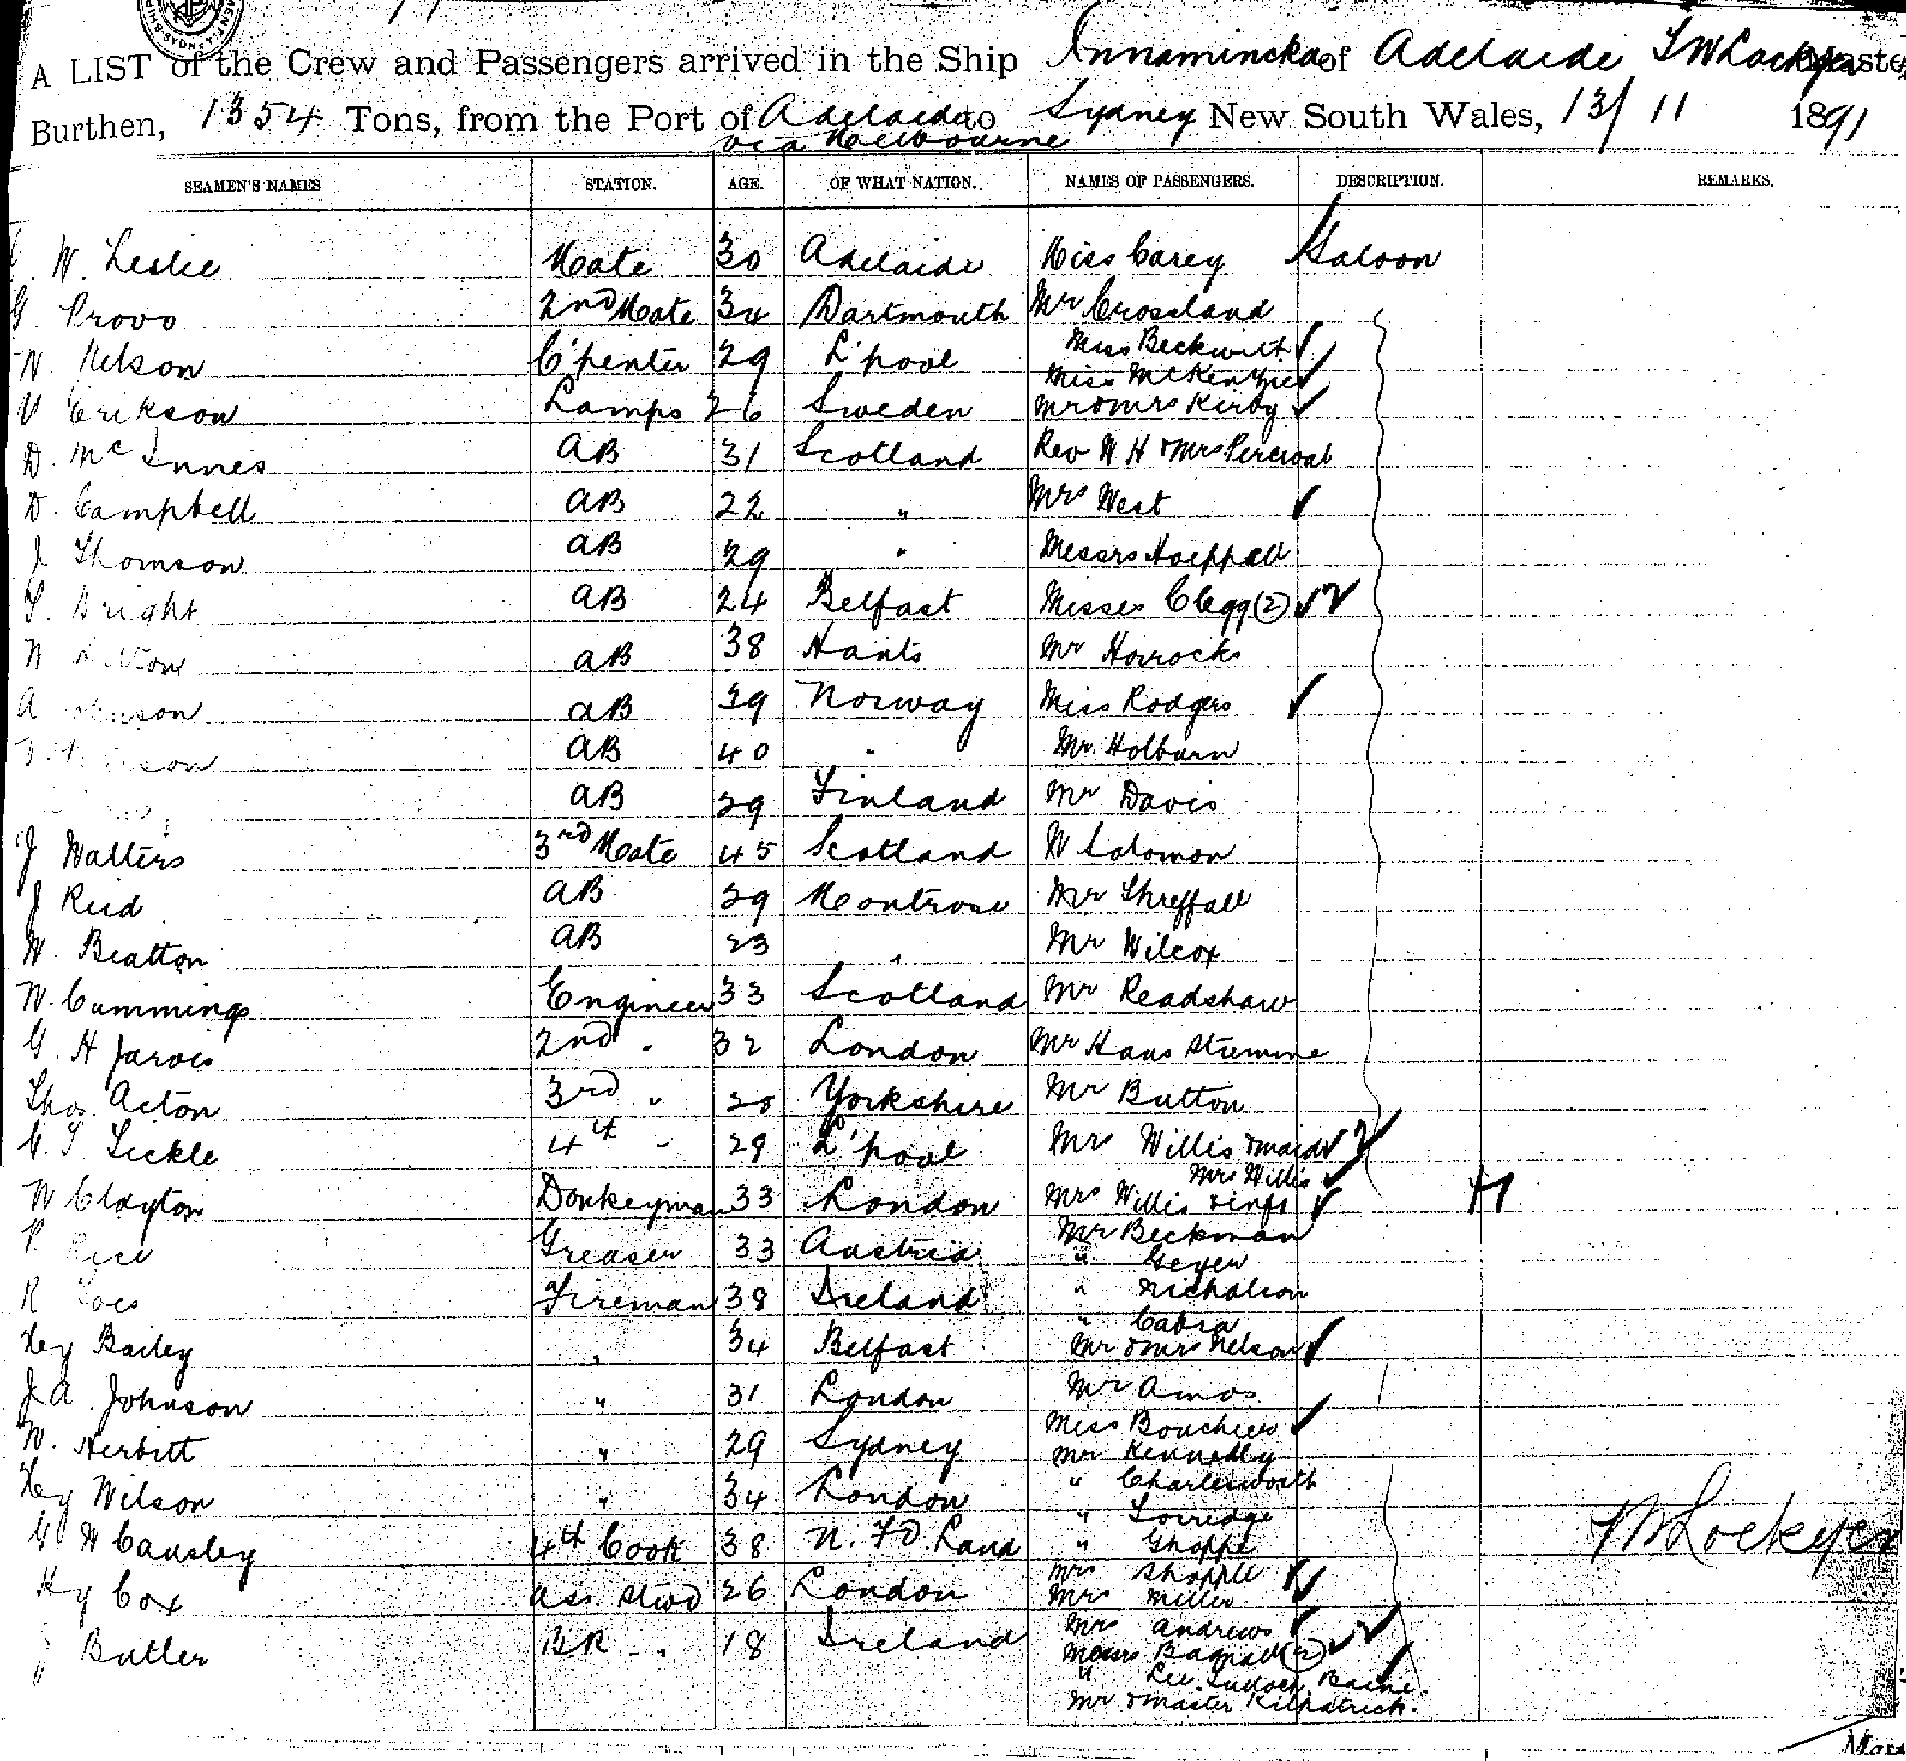 A LIST of the Crew and Passengers arrived in the Ship Innamincka of Adelaide T W Lockyer Master
Burthen, 1354 Tons, from the Port of Adelaide to Sydney New South Wales, 13/11 1891
via Melbourne
SEAMEN'S NAMES STATION. AGE. OF WHAT NATION. NAMES OF PASSENGERS. DESCRIPTION. REMARKS.
W. Leslie Mate 30 Adelaide Miss Carey Saloon
G. Provo 2nd Mate 34 Dartmouth Mr Crossland
N. Nelson C'penter 29 L'pool Miss Beckwith
Miss McKenzie
Erikson Lamps 26 Sweden Mr & Mrs Kirby
D. McInnes AB 31 Scotland Rev W H & Mrs Percival
D. Campbell AB 22 " Mrs West
J Thomson AB 29 " Messrs
Bright AB 24 Belfast Misses Clegg (2) 2
AB 38 Hants Mr Horrocks
A AB 39 Norway Miss Rodgers
AB 40 " Mr. Holburn
AB 29 Finland Mr Davis
J Walters 3rd Mate 45 Scotland W Solomon
J Reid AB 29 Montrose Mr Threffall
W. Beatton AB 23 " Mr Wilcox
W. Cummings Engineer 33 Scotland Mr Readshaw
G. H Jarvis 2nd " 32 London Mr Hans
Thos. Acton 3rd " Yorkshire Mr Button
Sickle 4th " 29 L'pool Mr Willis & maid 2
Mrs Willis
W Clayton Donkeyman 33 London Mrs Willis & inft
Greaser 33 Austria Mr Beckman
" Geyer
R Fireman 38 Ireland " Nicholson
" Cabra
Hy Bailey " 34 Belfast Mr & Mrs Nelson
J A. Johnson " 31 London Mr Amos
Miss Bouchier
W. Herbitt " 29 Sydney Mr Kennedy
Hy Wilson " 34 London " Charlesworth
" Torridge
G W Causley 4th Cook 38 N. F'D. Land "
T W Lockyer
Mrs
Hy Cox Ass Stwd 26 London Mrs Miller
Mrs Andrews
" Butler BR " 18 Ireland Messrs Bagnall (2)
" Lee
Mr & Master Kilpatrick.